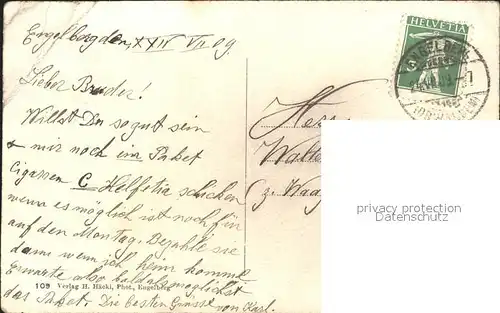 Engelberg den, XXIV VII 09
HELVETIA
Lieber Bruder!
Willst Du so gut sein
& mir noch im Paket
Cigarren C Helfetia schicken
wenn es möglich ist noch für
auf den Montag. Bezahle sie
dann wenn ich heim komme
Erwarte also baldmöglichst
109 Verlag H. Häcki, Phot., Engelberg
das Paket. Die besten Grüsse von Karl.
Herr
z. Waag
privacy protection
Datenschutz